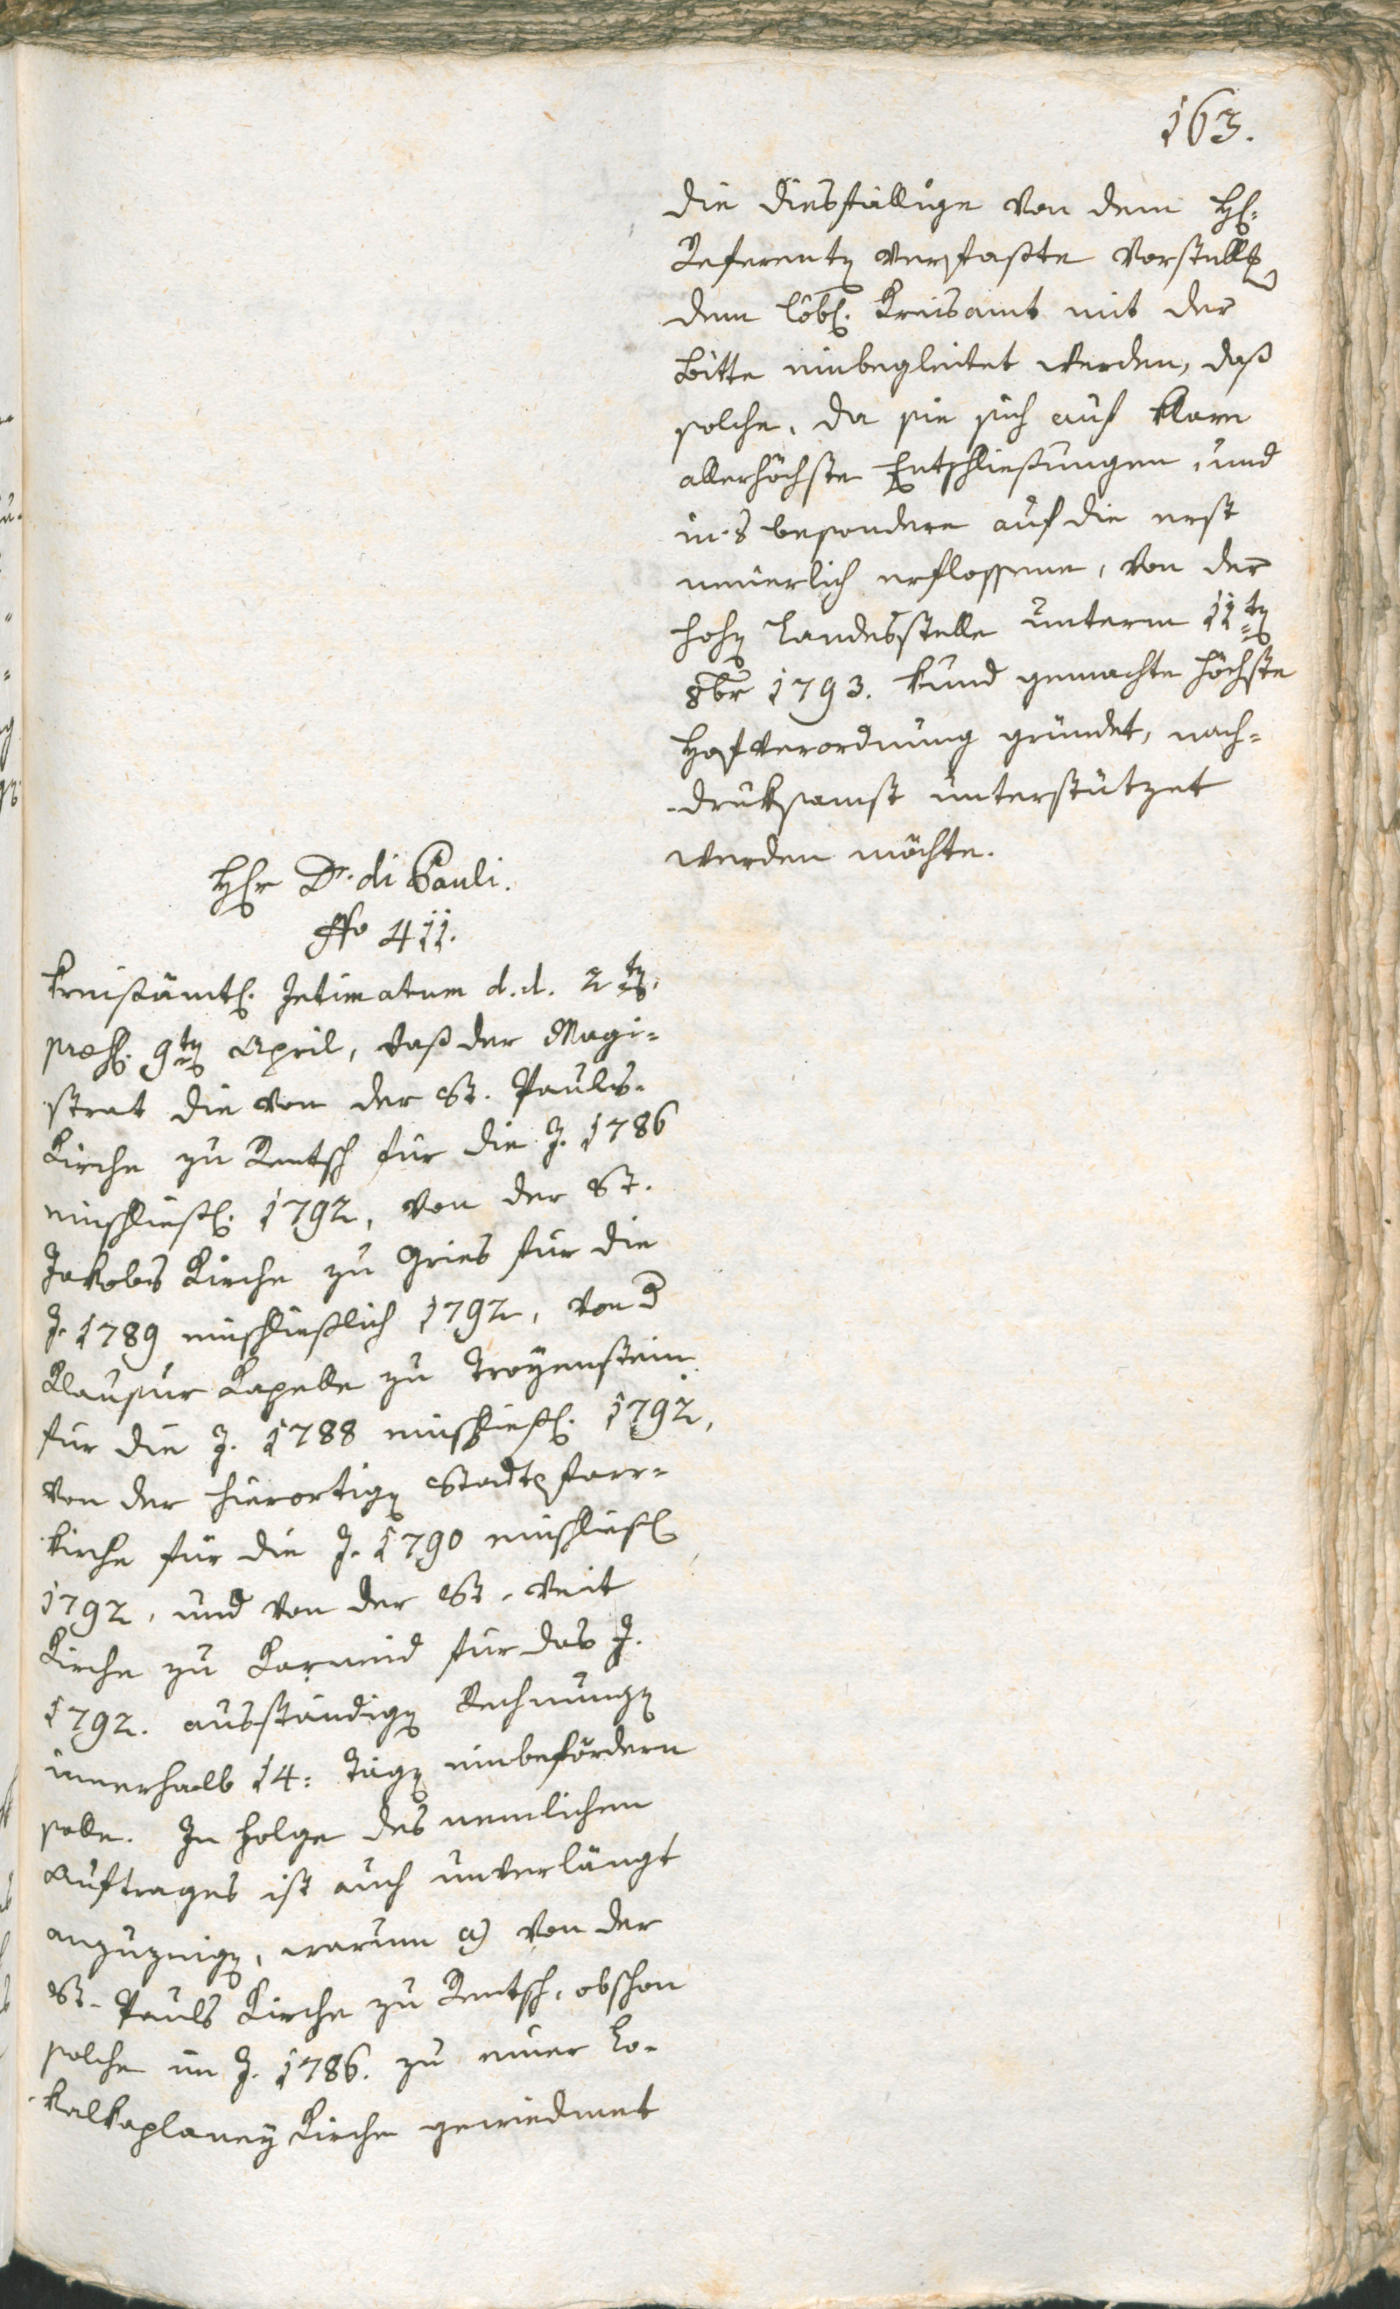 163.
die diesfällige von dem H:
Referenten verfaßte Vorstellg
dem löbl. Kreisamt mit der
Bitte einbegleitet werden, daß
solche, da sie sich auf klare
allerhöchste Entschließungen, und
in's besondere auf die erst
neuerlich erflossene, von der
hohen Landesstelle unterm 11ten
8br 1793. kund gemachte höchste
Hofverordnung gründet, nach=
druksamst unterstützet
werden möchte.
Hr Dr. di Pauli.
No 411.
Kreisämtl. Intimatum d.d. 2ten,
præs. 9ten April, daß der Magi=
strat die von der St. Pauls-
Kirche zu Rentsch für die J. 1786
einschließl. 1792, von der St.
Jakobs Kirche zu Gries für die
J. 1789 einschließlich 1792, von d
Klausur Kapelle zu Troyenstein
für die J. 1788 einschließl. 1792,
von der hierortigen Stadtpfarr=
kirche für die J. 1790 einschließl
1792, und von der St. Veit
Kirche zu Karneid für das J.
1792. ausständigen Rechnungen
innerhalb 14: Tägen einbefördern
solle. In Folge des nemlichen
Auftrages ist auch unverlängt
anzuzeigen, warum a) von der
St. Pauls Kirche zu Rentsch, obschon
solche im J. 1786. zu einer Lo-
kalkaplaney Kirche gewiedmet